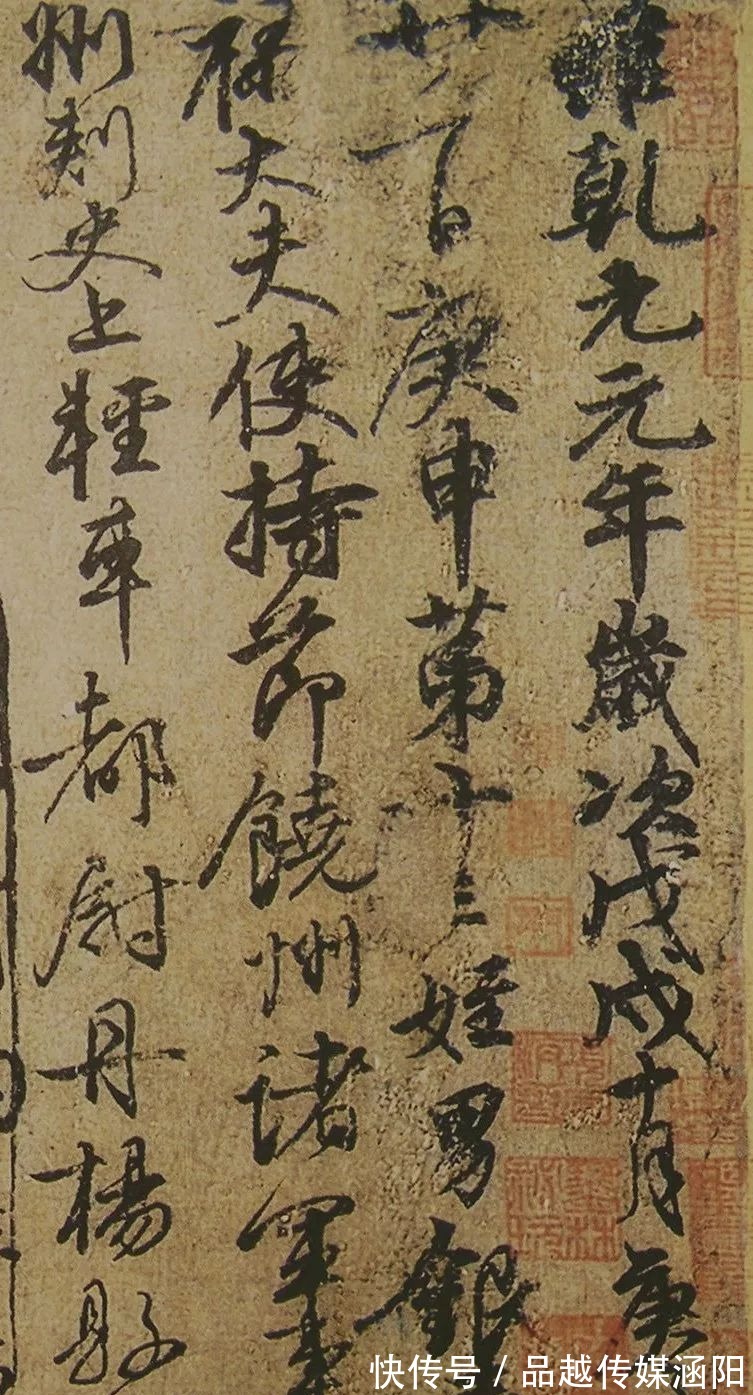 維乾元元年歲次戊戌十月庚
廿一日庚申第十三姪男銀
祿大夫使持節饒州諸軍事
州刺史上輕車都尉丹楊縣
快传号 / 品越传媒涵阳